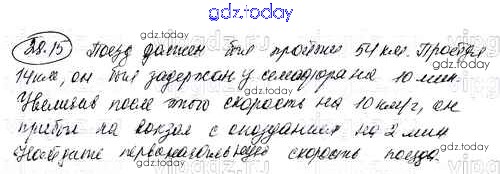 gdz.today
28.15 Поезд должен был пройти 54 км. Пройдя
14 км, он был задержан у семафора на 10 мин.
Увеличив после этого скорость на 10 км/г, он
прибыл на вокзал с опозданием на 2 мин
Найдите первоначальную скорость поезда.
gdz.today